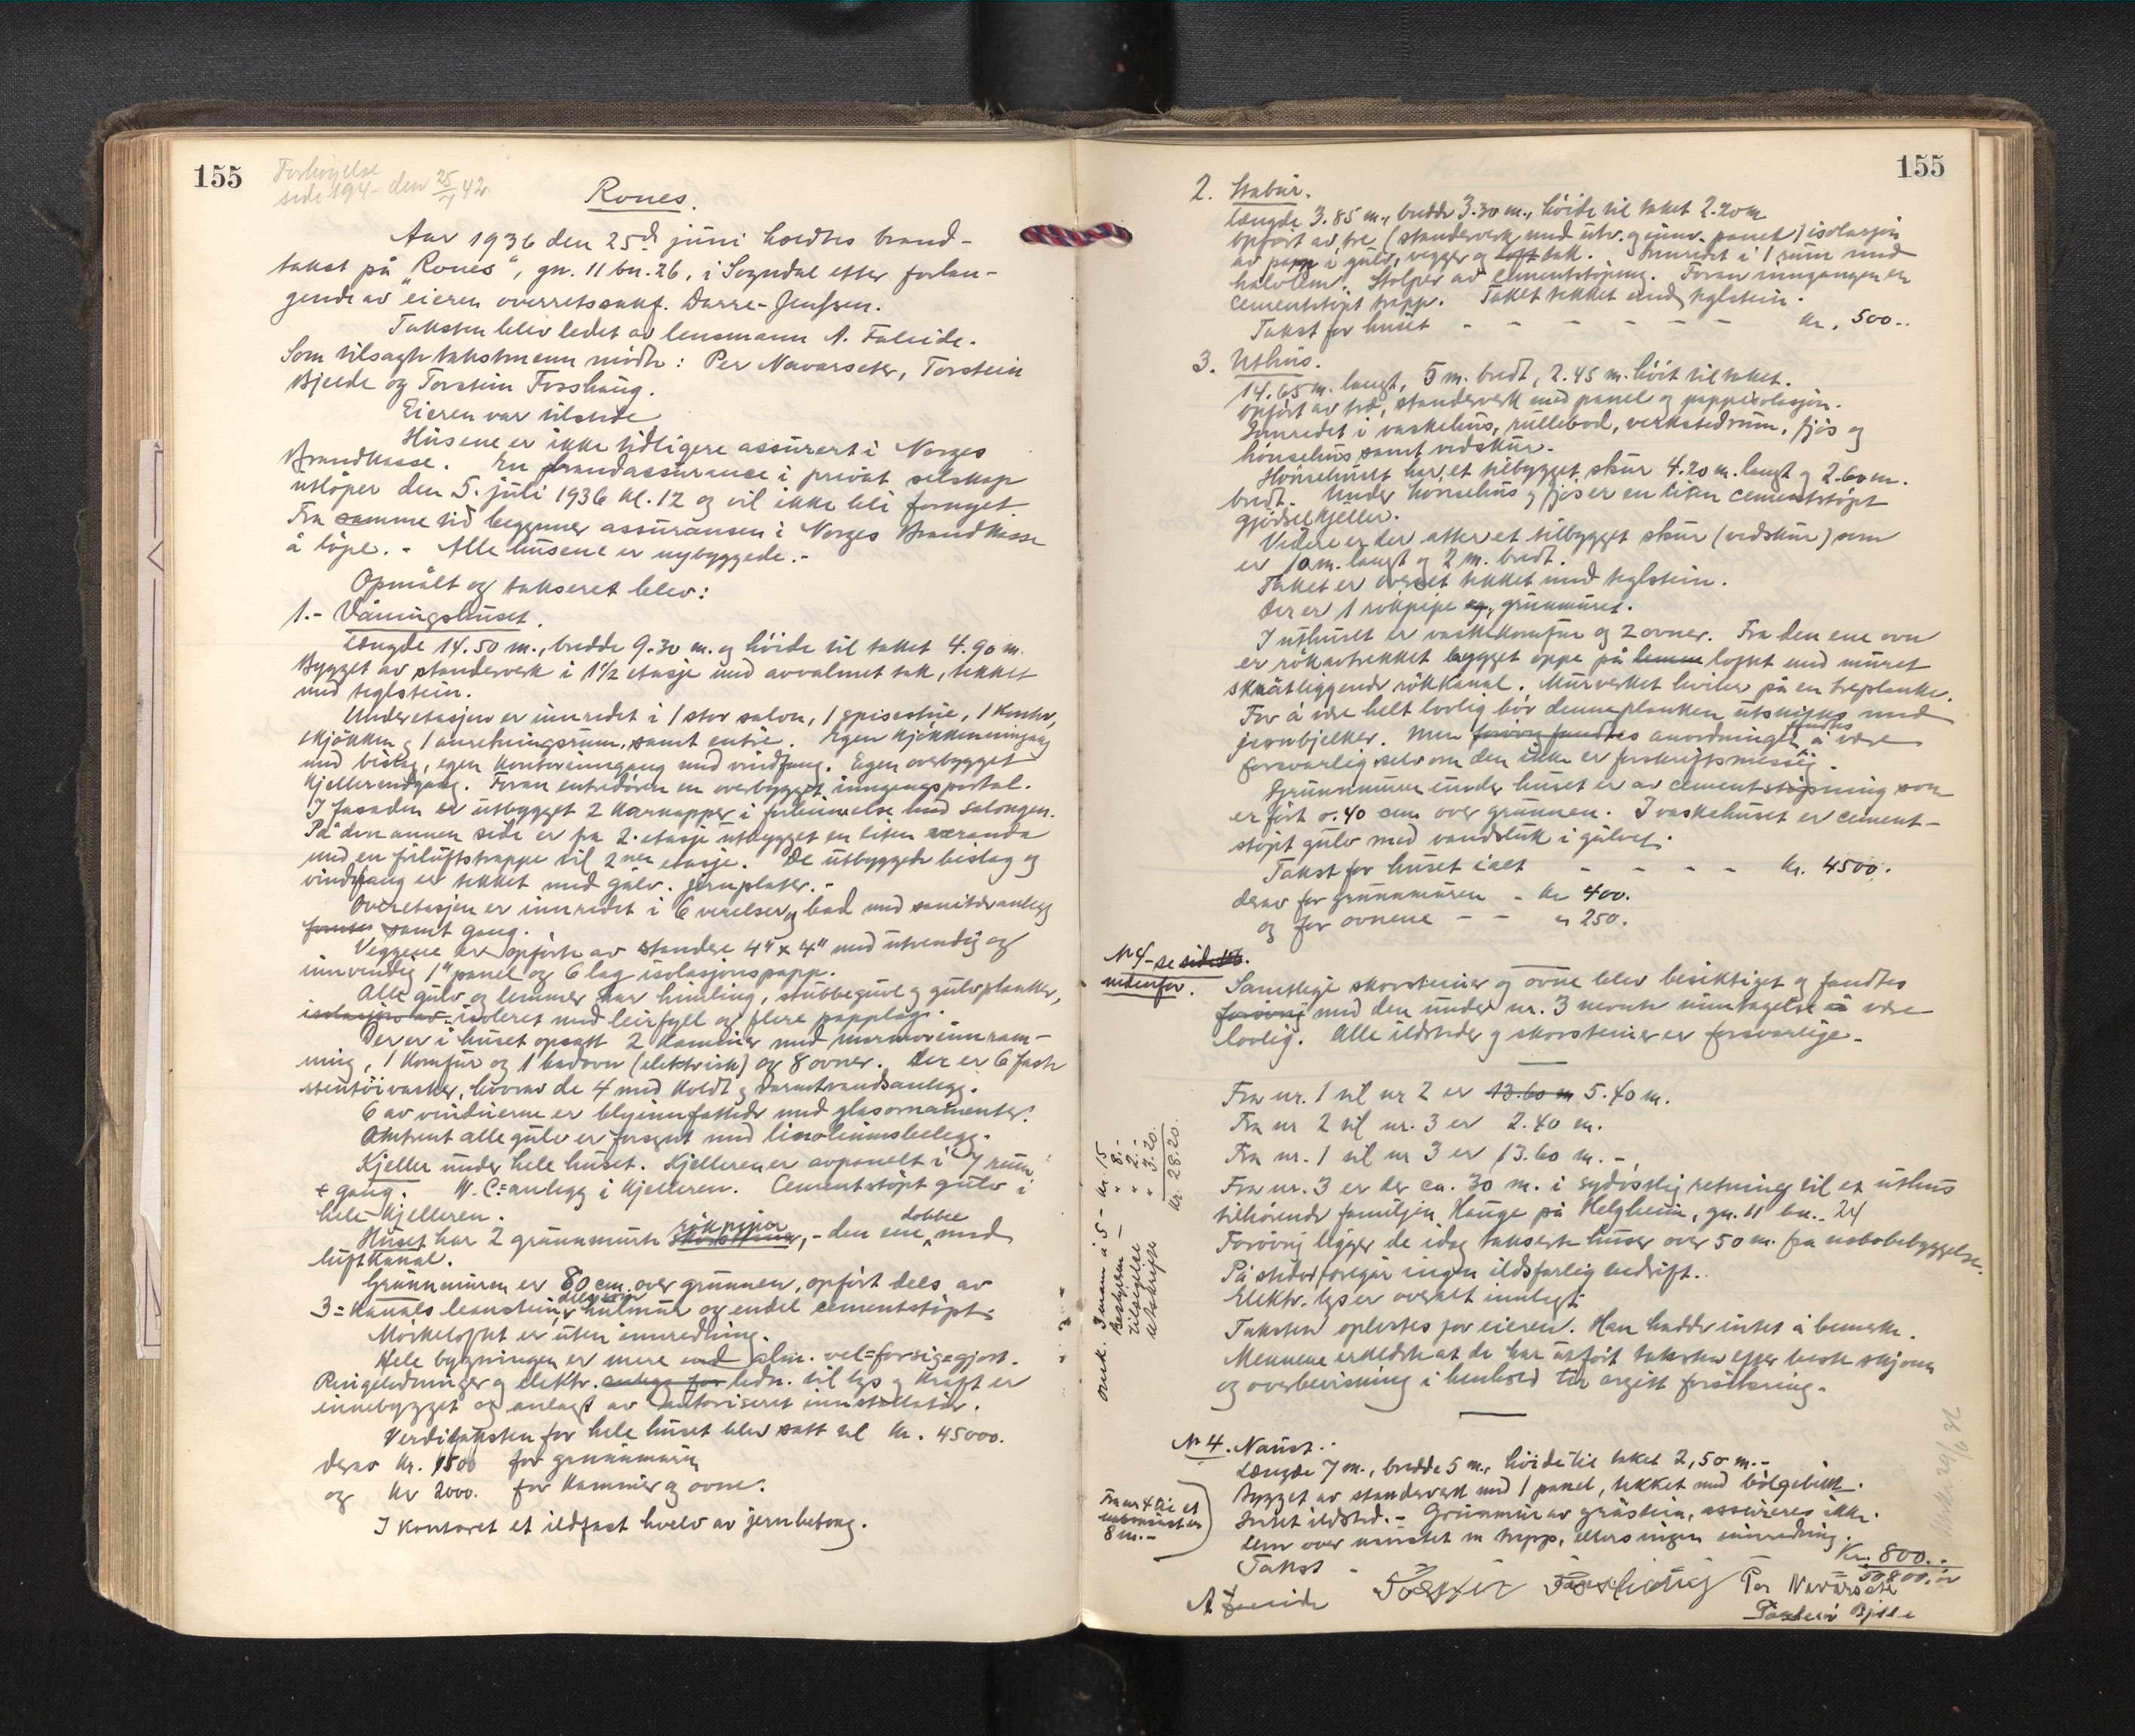 155
Forhøyelse
side 194 - den 25/7 42.
Rones.
Aar 1936 den 25d juni holdtes brand-
takst på "Rones", gn. 11 bn. 26, i Sogndal efter forlan-
gende av eieren overretssakf. Darre-Jenssen.
Taksten blev ledet av lensmann A. Faleide.
Som tilsagte takstmenn møtte: Per Navarseter, Torstein
Bjelde og Torstein Fosshaug.
Eieren var tilstede
Husene er ikke tidligere assurert i Norges
Brandkasse. En brandassurance i privat selskap
utløper den 5. juli 1936 kl. 12 og vil ikke bli fornyet
Fra samme tid begynner assuransen i Norges Brandkasse
å løpe. - Alle husene er nybyggede.-
Opmålt og taksert blev:
1.- Våningshuset.
Længde 14.50 m., bredde 9.30 m. og høide til taket 4.90 m.
Bygget av standerverk i 1 1/2 etasje med avvalmet tak, tekket
med teglstein.
Underetasjen er innredet i 1 stor salon, 1 spisestue, 1 kontor,
1 kjøkken og 1 anretningsrum, samt entré. Egen kjøkkeninngang
med bislag, egen kontorinngang med vindfang. Egen overbygget
kjellernedgang. Foran entrédøren en overbygget inngangsportal.
I fasaden er utbygget 2 karnapper i forbindelse med salongen.
På den annen side er fra 2. etasje utbygget en liten veranda
med en friluftstrappe til 2nen etasje. De utbyggede bislag og
vindfang er tekket med galv. jernplater.-
Overetasjen er innredet i 6 værelser og bad med sanitæranlegg
samt gang.
Veggene er opført av standere 4" x 4" med utvendig og
innvendig 1" panel og 6 lag isolasjonspapp.
Alle gulv og lemmer har himling, stubbegulv og gulvplanker,
isolasjon av isoleret med leirfyll og flere papplag.
Der er i huset opsatt 2 kaminer med marmorinnram-
ning, 1 komfur og 1 badovn (elektrisk) og 8 ovner. Der er 6 faste
stentøivasker, hvorav de 4 med koldt og varmtvandsanlegg.
6 av vinduerne er blyinnfattede med glasornamenter.
Omtrent alle gulv er forsynt med linoleumsbelegg.
Kjeller under hele huset. Kjelleren er avpanelt i 7 rum
+ gang. W.C.=anlegg i kjelleren. Cementstøpt gulv i
hele kjelleren.
Huset har 2 grunnmurte skorsteiner rökpiper, - den ene dobbel med
luftkanal.
Grunnmuren er 80 cm. over grunnen, opført dels av
3=kanals leanstein, dels som hulmur og endel cementstøpt.
Mørkeloftet er uten innredning.
Hele bygningen er mere end alm. vel=forsig=gjort.
Ringeledninger og elektr. anlegg for ledn. til lys og kraft er
innebygget og anlagt av autoriseret installatør.
Verditaksten for hele huset blev satt til Kr. 45000.
derav Kr. 1500 for grunnmuren
og Kr 2000. for kaminer og ovne.
I kontoret et ildfast hvelv av jernbetong.
155
2. Stabur.
Længde 3.85 m., bredde 3.30 m., høide til taket 2.20 m
Opført av tre, (standerverk med utv. og innv. panel) isolasjon
av papp i gulv, vegger og loft tak. Innredet i 1 rum med
halvlem. Stolper av cementstøpning. Foran inngangen en
cementstøpt trapp. Taket tekket med teglstein.
Takst for huset - - - - - - Kr. 500..
3. Uthus.
14.65 m. langt, 5 m. bredt, 2.45 m. høit til taket.
Opført av tre, standerverk med panel og pappisolasjon.
Innredet i vaskehus, rullebod, verkstedrum, fjøs og
hønsehus samt vedskur.
Hønsehuset har et tilbygget skur 4.20 m. langt og 2.60 m.
bredt. Under hønsehus og fjøs er en liten cementstøpt
gjødselkjeller.
Videre er der atter et tilbygget skur (vedskur) som
er 10 m. langt og 2 m. bredt.
Taket er overalt tekket med teglstein.
Der er 1 rökpipe og, grunnmuret.
I uthuset er vaskekomfur og 2 ovner. Fra den ene ovn
er rökavtrekket bygget oppe på lemm loftet med muret
skråtliggende rökkanal. Murverket hviler på en treplanke.
For å være helt lovlig bör denne planken utskiftes med
jernbjelker. Men forøvrig fandtes anordningen fandtes å være
forsvarlig selv om den ikke er forskriftsmessig.
Grunnmuren under huset er av cementstøpning som
er ført o. 40 cm over grunnen. I vaskehuset er cement-
støpt gulv med vandsluk i gulvet.
Takst for huset ialt - - - - Kr. 4500.
derav for grunnmuren - Kr 400.
og for ovnene - - " 250.
No 4 - se side 156.
nedenfor.
Samtlige skorsteiner og ovne blev besiktiget og fandtes
forøvrig med den under nr. 3 nevnte undtagelse å være
lovlig. Alle ildsteder og skorsteiner er forsvarlige.
Fra nr. 1 til nr 2 er 13.60 m 5.40 m.
Fra nr 2 til nr. 3 er 2.40 m.
Fra nr. 1 til nr 3 er 13.60 m. -
Fra nr. 3 er der ca. 30 m. i sydøstlig retning til et uthus
tilhørende familjen Hauge på Helgheim, gn. 11 bn. 24
Forøvrig ligger de idag takserte huser over 50 m. fra nabobebyggelse.
På stedet foregår ingen ildsfarlig bedrift.
Elektr. lys er overalt innlagt.
Taksten oplestes for eieren. Han hadde intet å bemerke.
Mennene erklærte at de har utført taksten efter beste skjønn
og overbevisning i henhold til avgitt forsikring.
Omk. 3 mann á 5 - Kr. 15
Bestyreren - " 8.-
tilsigelse " 2.-
utskrift " 3.20.
Kr. 28.20.
No 4. Naust..
Længde 7 m., bredde 5 m., høide til taket 2,50 m.-
Bygget av standerverk med 1 panel, tekket med bølgeblikk.
Intet ildsted.- Grunnmur av gråstein, assureres ikke.
Lem over naustet m trapp, ellers ingen innredning.
Takst - Kr. 800..
50800.-
Fra nr 4 til et
8 m.-
A Faleide Torstein Fosshaug Per Navarsete
Torstein Bjelde